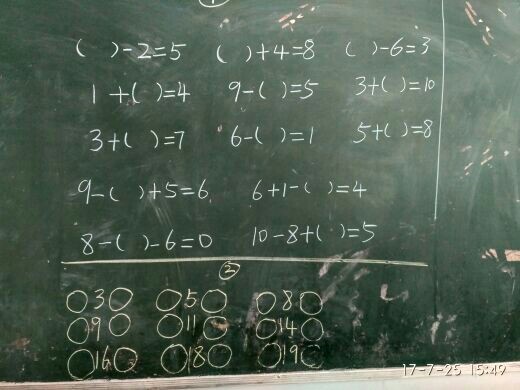 ①
( )-2=5 ( )+4=8 ( )-6=3
1+( )=4 9-( )=5 3+( )=10
3+( )=7 6-( )=1 5+( )=8
9-( )+5=6 6+1-( )=4
8-( )-6=0 10-8+( )=5
②
○3○ ○5○ ○8○
○9○ ○11○ ○14○
○16○ ○18○ ○19○
17-7-25 15:49